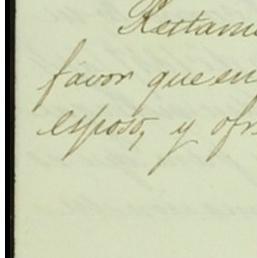 Restame
favor que en
esposo, y ofr